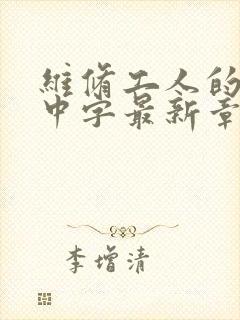 維脩工人的
中字最新章
李增清